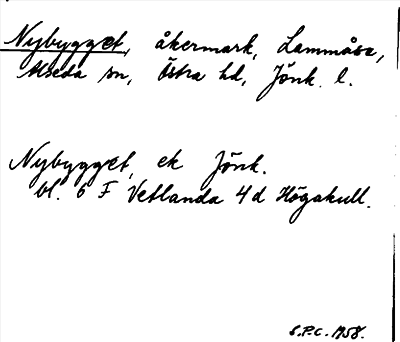 Nybygget, åkermark, Lammåsa,
Alseda sn, Östra hd, Jönk. l.
Nybygget, ek Jönk.
bl. 6 F Vetlanda 4 d Högakull.
S.P.C. 1958.